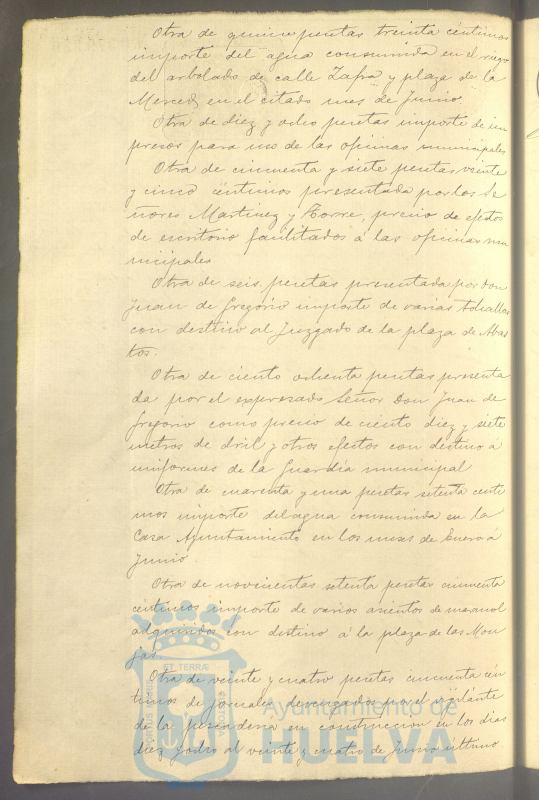 Otra de quince pesetas treinta céntimos
importe del agua consumida en el riego
del arbolado de calle Zafra y plaza de la
Merced en el citado mes de Junio.
Otra de diez y ocho pesetas importe de im
presos para uso de las oficinas municipales
Otra de cincuenta y siete pesetas veinte
y cinco céntimos presentada por los Se
ñores Martinez y Torre, precio de efectos
de escritorio facilitados á las oficinas mu
nicipales
Otra de seis pesetas presentada por Don
Juan de Gregorio importe de varias tohallas
con destino al Juzgado de la plaza de Abas
tos.
Otra de ciento ochenta pesetas presenta
da por el expresado Señor Don Juan de
Gregorio como precio de ciento diez y siete
metros de dril y otros efectos con destino á
uniformes de la Guardia municipal
Otra de cuarenta y una pesetas setenta centi
mos importe del agua consumida en la
Casa Ayuntamiento en los meses de Enero á
Junio.
Otra de novecientas setenta pesetas cincuenta
céntimos importe de varios asientos de marmol
adquiridos con destino á la plaza de las Mon
jas
Otra de veinte y cuatro pesetas cincuenta cén
timos de jornales devengados por el vigilante
de la pescaderia en construccion en los dias
diez y ocho al veinte y cuatro de Junio último
ET TERRÆ
Ayuntamiento de
HUELVA